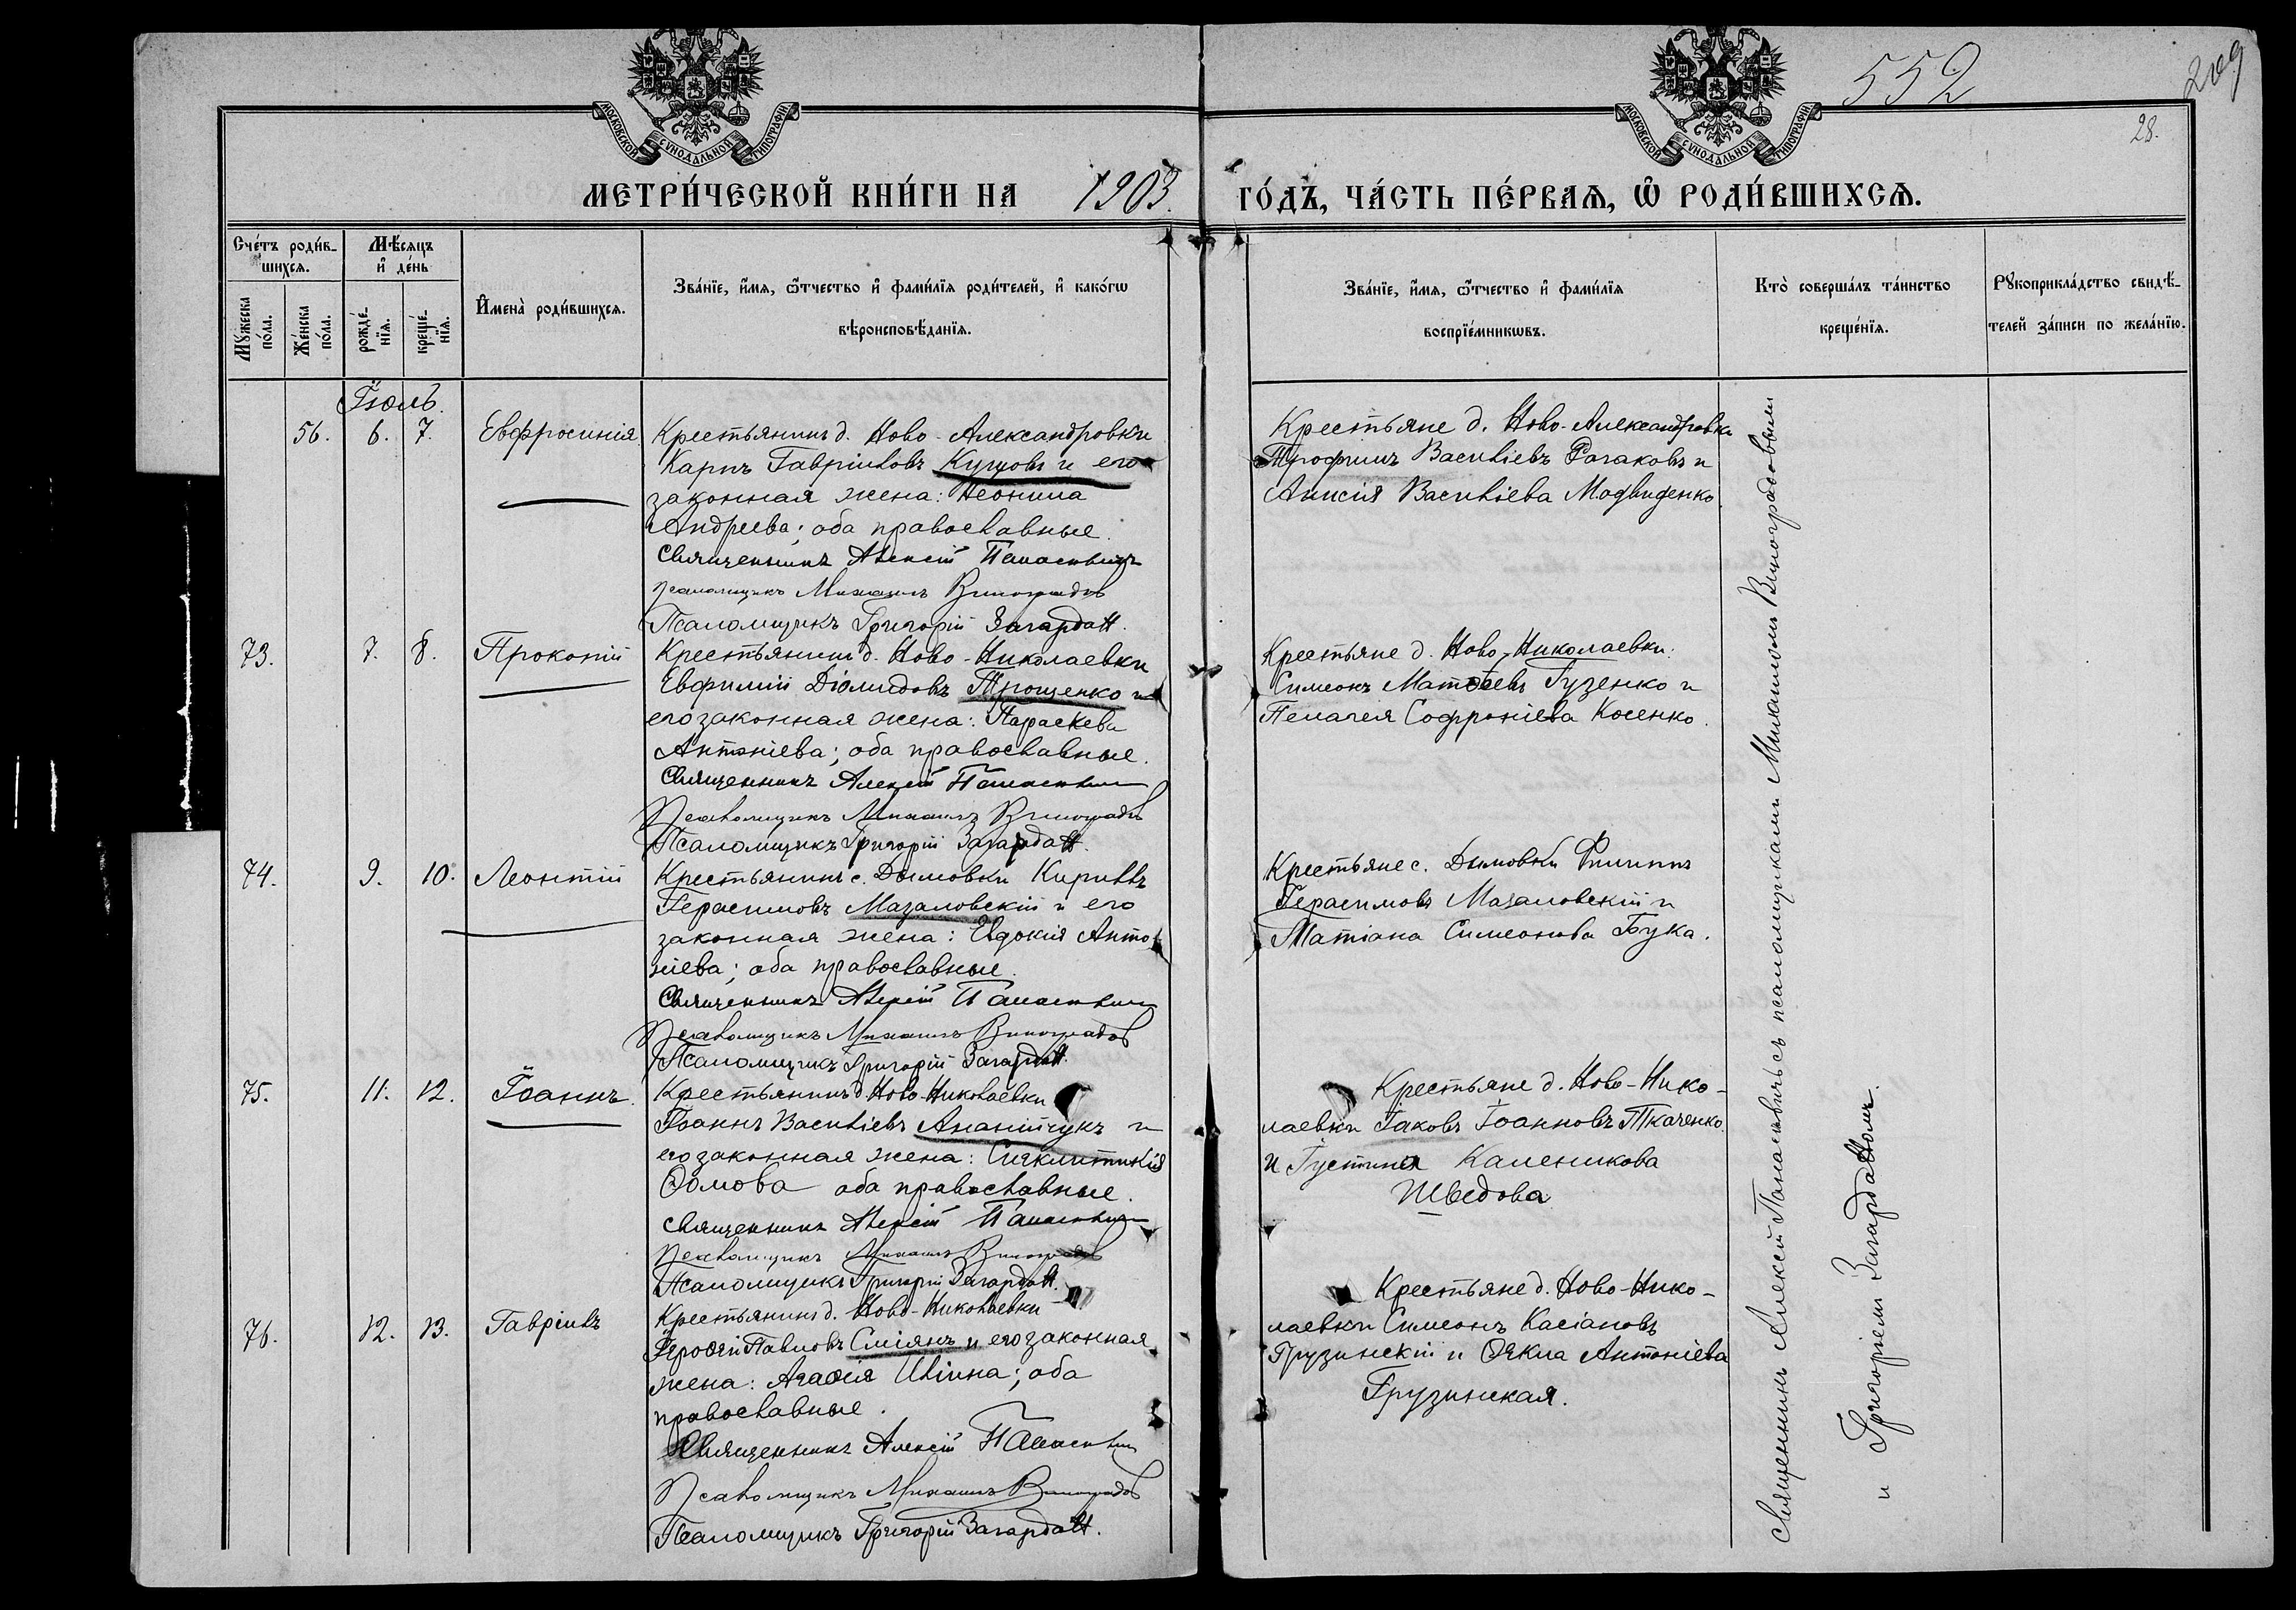 552
209
28.
МОСКОВСКОЙ СѴНОДАЛЬНОЙ ТИПОГРАФІИ
МОСКОВСКОЙ СѴНОДАЛЬНОЙ ТИПОГРАФІИ
МЕТРИ́ЧЕСКОЙ КНИ́ГИ НА 1903. ГО́ДЪ, ЧА́СТЬ ПЕ́РВАѦ, Ѽ РОДИ́ВШИХСѦ.
Сче́тъ роди́в-
шихсѧ.
Мꙋ́жеска по́ла.
Же́нска по́ла.
Мѣ́сѧцъ
и҆ де́нь
рожде́-
нїѧ.
креще́-
нїѧ.
И҆мена̀ роди́вшихсѧ.
Зва́нїе, и҆́мѧ, ѻ҆́тчество и҆ фами́лїѧ роди́телей, и҆ како́гѡ
вѣроисповѣ́данїѧ.
Зва́нїе, и҆́мѧ, ѻ҆́тчество и҆ фами́лїѧ
воспрїе́мникѡвъ.
Кто̀ соверша́лъ та́инство
креще́нїѧ.
Рꙋкоприкла́дство свидѣ́-
телей за́писи по жела́нїю.
Іюль.
56. 6. 7. Евфросинія
Крестьянинъ д. Ново-Александровки
Карпъ Гавріиловъ Куцовъ и его
законная жена: Неонила
Андреева; оба православные.
Священникъ Алексій Панасевичъ
Псаломщикъ Михаилъ Виноградовъ
Псаломщикъ Григорій Загардатт.
Крестьяне д. Ново-Александровки
Трофимъ Василіевъ Рагаковъ и
Анисія Василіева Модвиденко
73. 7. 8. Прокопій
Крестьянинъ д. Ново-Николаевки
Евфимій Діомидовъ Трощенко и
его законная жена: Параскева
Антоніева; оба православные.
Священникъ Алексій Панасевичъ
Псаломщикъ Михаилъ Виноградовъ
Псаломщикъ Григорій Загардатт.
Крестьяне д. Ново-Николаевки:
Симеонъ Матѳеевъ Гузенко и
Пелагея Софроніева Косенко.
74. 9. 10. Леонтій
Крестьянинъ с. Дымовки Кириллъ
Герасимовъ Мазаловскій и его
законная жена: Евдокія Анто-
ніева; оба православные.
Священникъ Алексій Панасевичъ
Псаломщикъ Михаилъ Виноградовъ
Псаломщикъ Григорій Загардатт.
Крестьяне с. Дымовки Филиппъ
Герасимовъ Мазаловскій и
Татіана Симеонова Бука.
75. 11. 12. Іоаннъ.
Крестьянинъ д. Ново-Николаевки
Іоаннъ Василіевъ Ананійчукъ и
его законная жена: Синклитикія
Ѳомова оба православные.
Священникъ Алексій Панасевичъ
Псаломщикъ Михаилъ Виноградовъ
Псаломщикъ Григорій Загардатт.
Крестьяне д. Ново-Нико-
лаевки Іаковъ Іоанновъ Ткаченко
и Іустина Каленикова
Шведова
76. 12. 13. Гавріилъ
Крестьянинъ д. Ново-Николаевки
Іероѳей Павловъ Сміянъ и его законная
жена: Агаѳія Иліина; оба
православные.
Священникъ Алексій Панасевичъ
Псаломщикъ Михаилъ Виноградовъ
Псаломщикъ Григорій Загардатт.
Крестьяне д. Ново-Нико-
лаевки Симеонъ Касіановъ
Грузинскій и Ѳекла Антоніева
Грузинская.
Священникъ Алексій Панасевичъ съ псаломщиками Михаиломъ Виноградовымъ
и Григоріемъ Загардаттомъ.